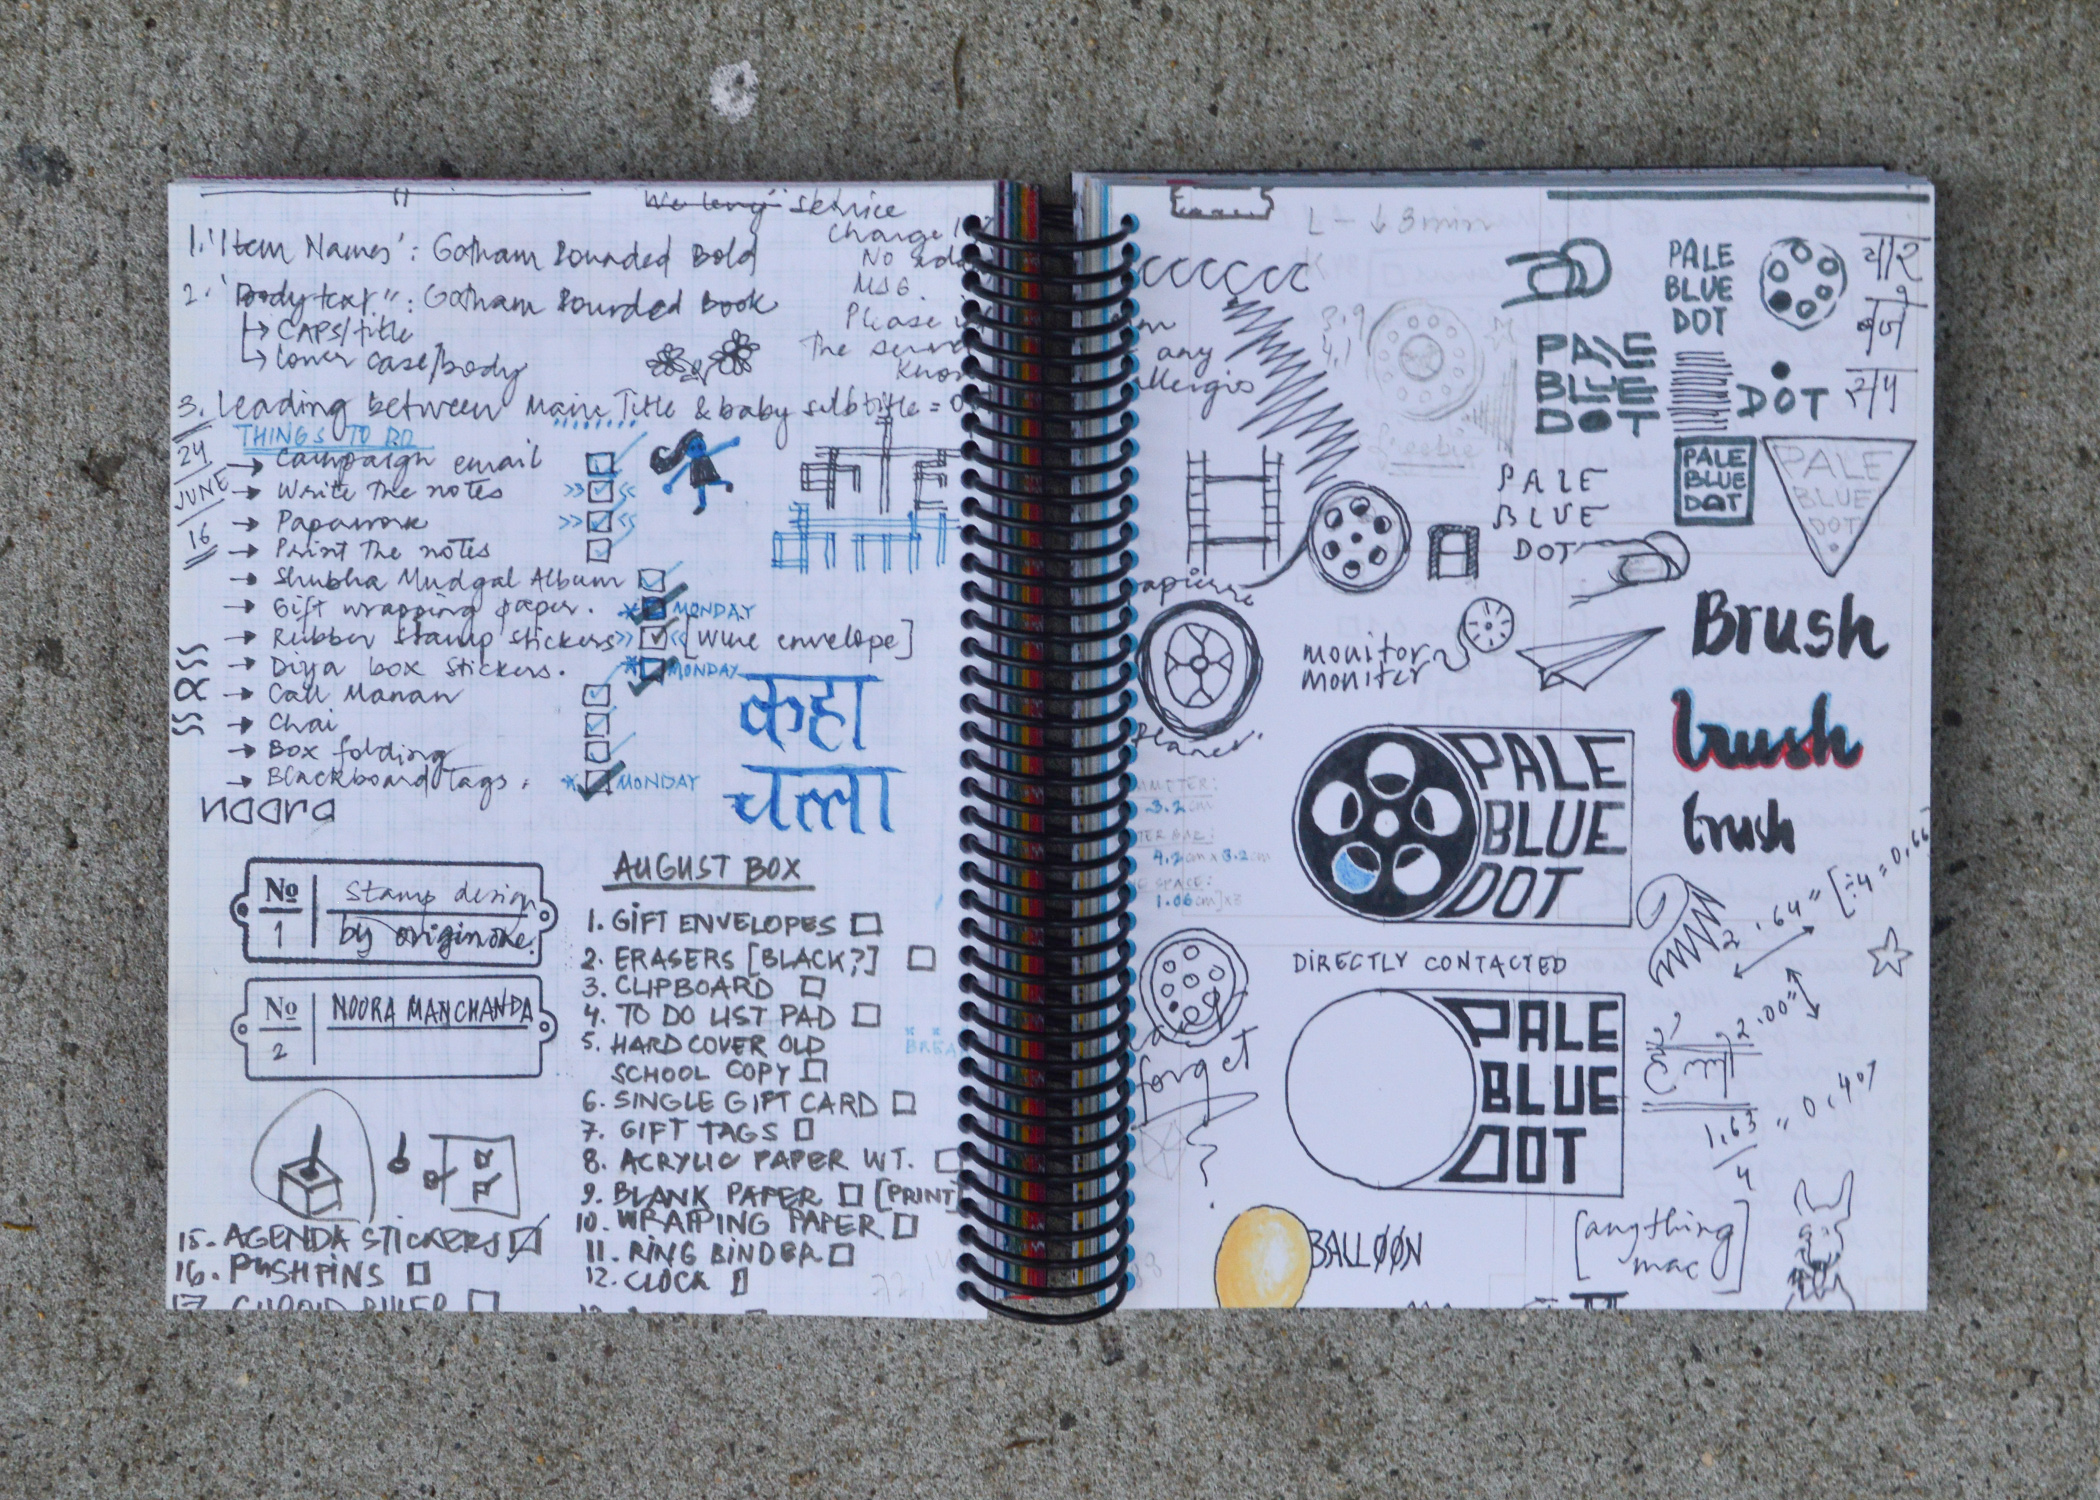 service
Charge
No
MSG.
Please
The
any
allergies
1. 'Item Names': Gotham Rounded Bold
2. 'Bodytext": Gotham Rounded Book
↳ CAPS/title
↳ Lower case/body
3. Leading between Main Title & baby subtitle =
THINGS TO DO
24
JUNE
16
→ Campaign email
→ Write the notes
→ Paperwork
→ Print the notes
→ Shubha Mudgal Album
→ Gift wrapping paper. MONDAY
→ Rubber stamp stickers [Wine envelope]
→ Diya box stickers. MONDAY
→ Call Manan
→ Chai
→ Box folding
→ Blackboard Tags. MONDAY
noora
कहा
चला
No 1 Stamp design
by originone.
No 2 NOORA MANCHANDA
15. AGENDA STICKERS
16. PUSHPINS
17.
AUGUST BOX
1. GIFT ENVELOPES
2. ERASERS [BLACK?]
3. CLIPBOARD
4. TO DO LIST PAD
5. HARD COVER OLD
SCHOOL COPY
6. SINGLE GIFT CARD
7. GIFT TAGS
8. ACRYLIC PAPER WT.
9. BLANK PAPER [PRINT]
10. WRAPPING PAPER
11. RING BINDER
12. CLOCK
L - ↓ 3 min
CCCCCCC
3.9
4.1
PALE
BLUE
DOT
PALE
BLUE
DOT
DOT
PALE
BLUE
DOT
PALE
BLUE
DOT
PALE
BLUE
DOT
monitor
moniter
Brush
brush
brush
Planet
3.2cm
4.2cm x 3.2cm
SPACE:
1.06cm] x3
PALE
BLUE
DOT
2.64" [÷4 = 0.66
DIRECTLY CONTACTED
2.00"
forget
PALE
BLUE
DOT
1.63
4
BALLØØN
[anything
mac]